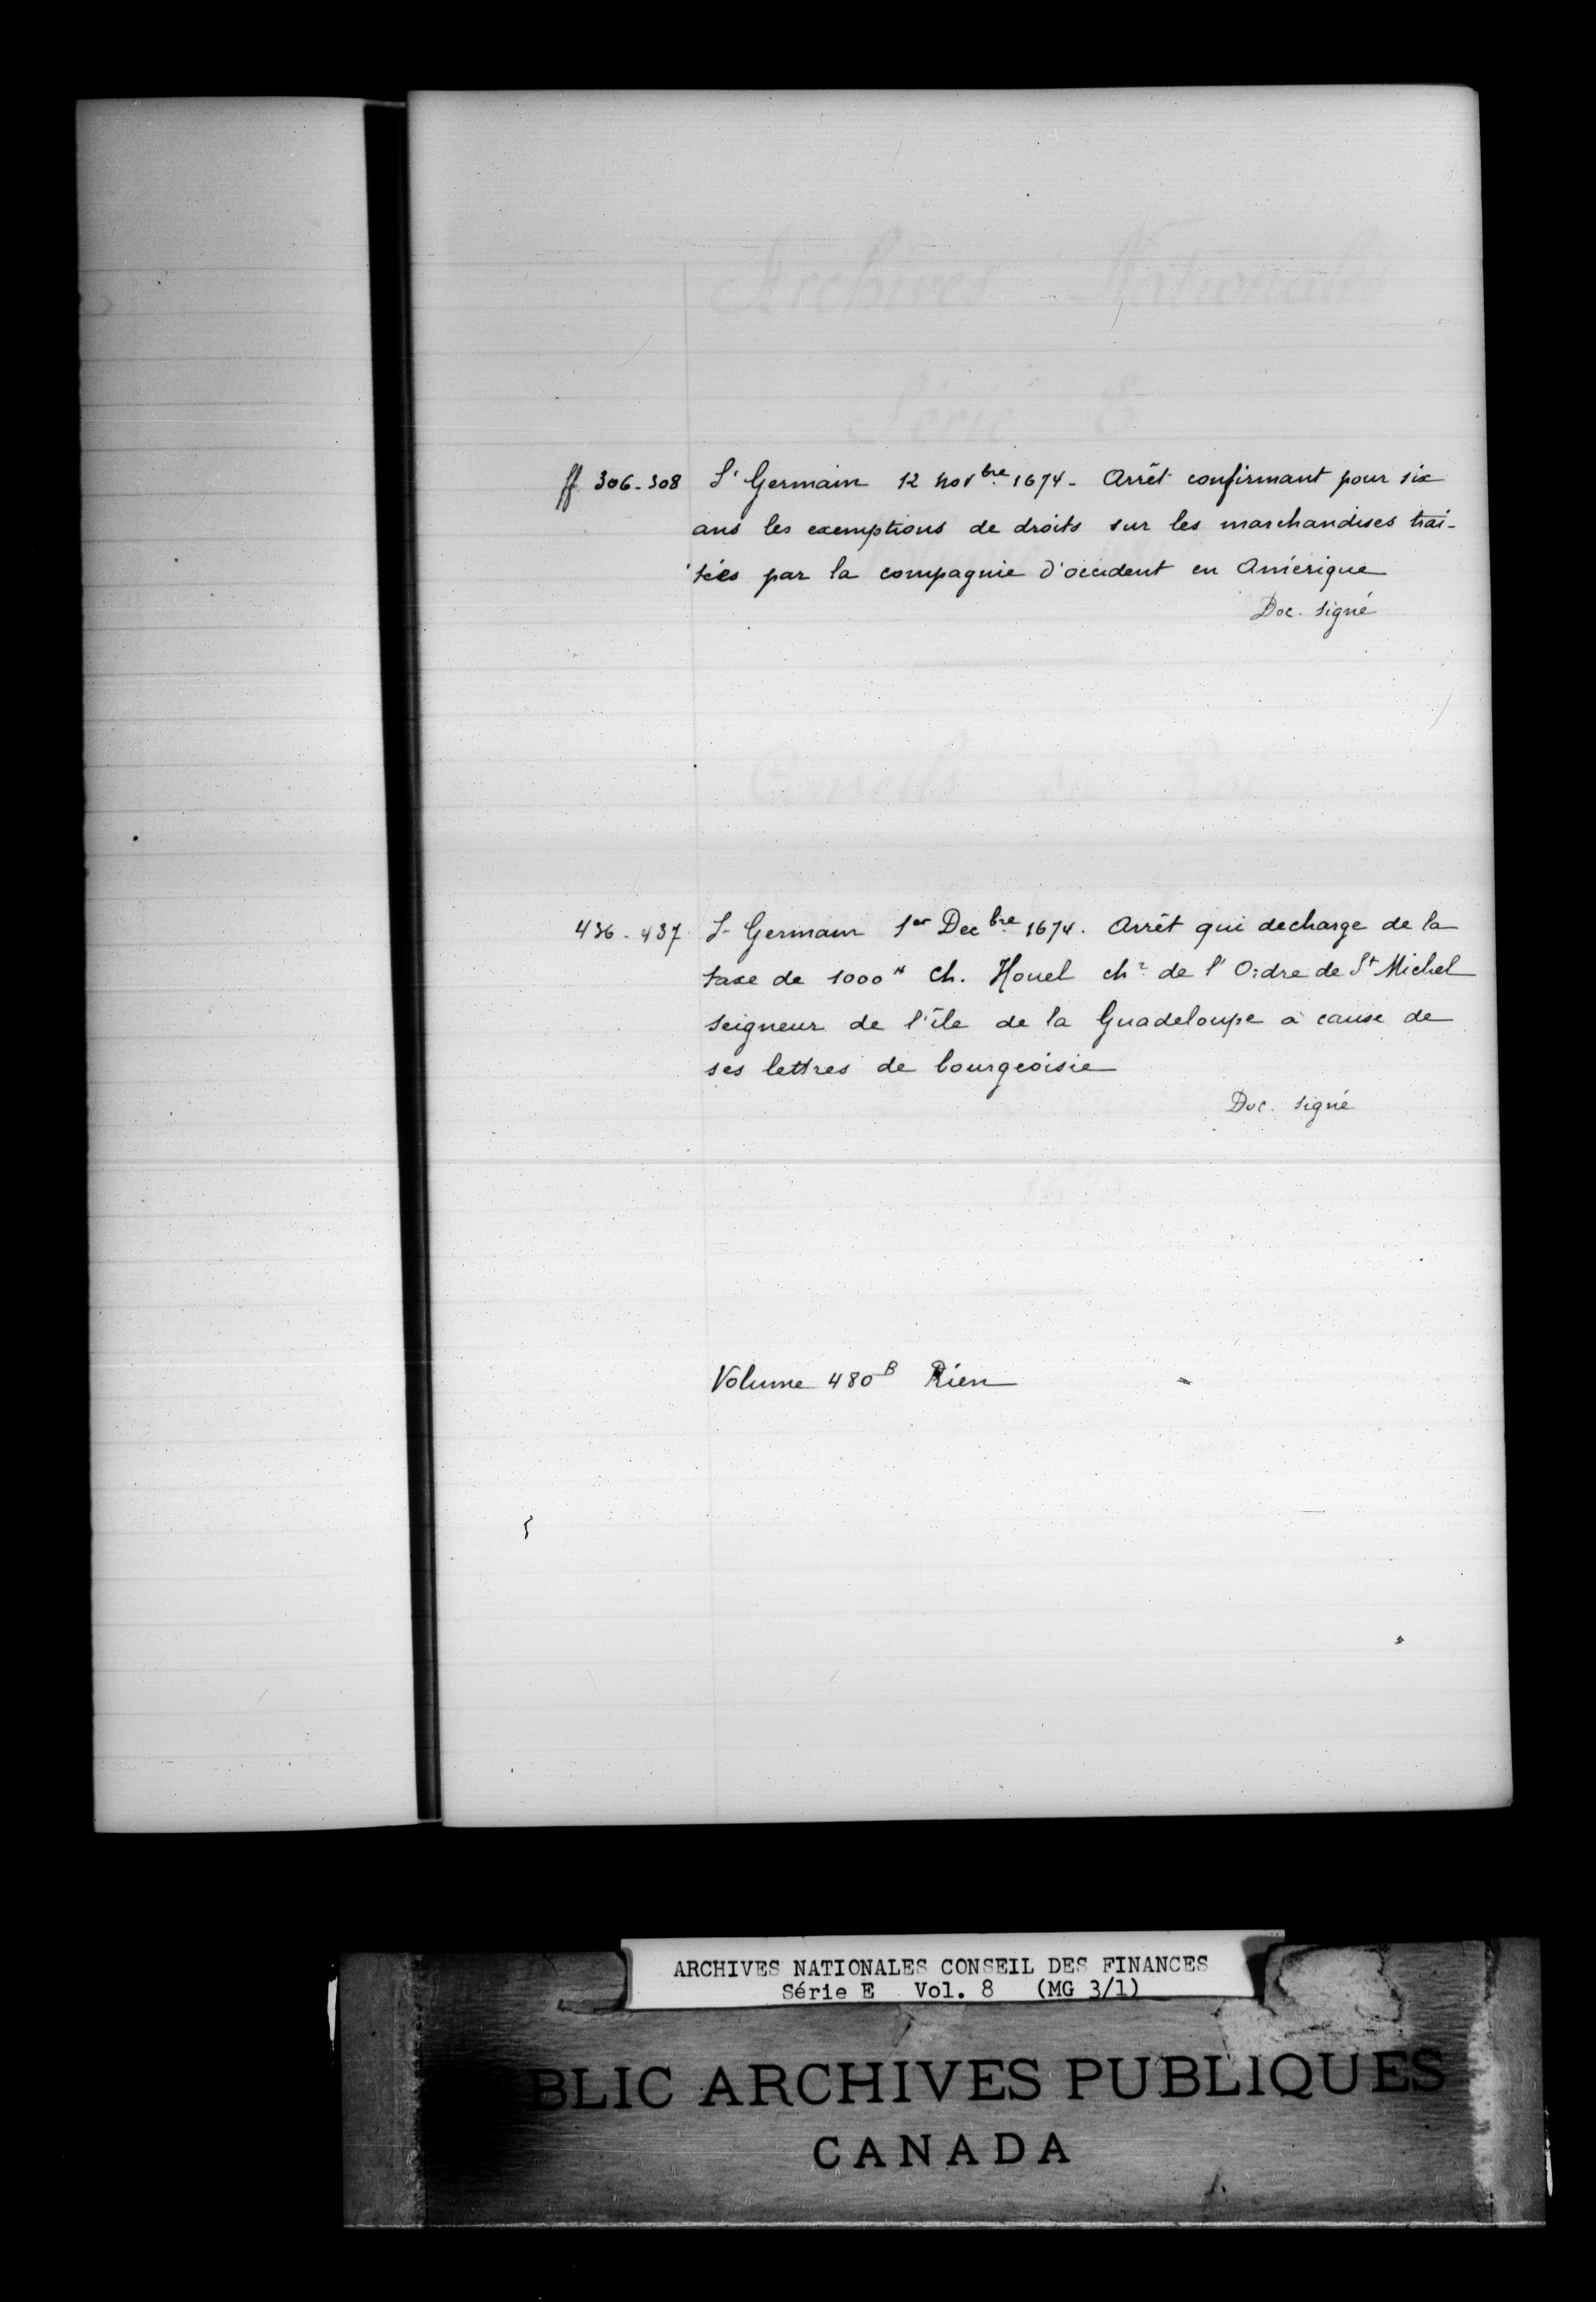 ff 306-308 St Germain 12 Novbre 1674 - Arrêt confirmant pour six
ans les exemptions de droits sur les marchandises trai-
tées par la compagnie d'occident en Amérique
Doc. signé
436-437 St Germain 1er Decbre 1674. Arrêt qui decharge de la
taxe de 1000# Ch. Houel chr de l'Ordre de St Michel
seigneur de l'île de la Guadeloupe à cause de
ses lettres de bourgeoisie
Doc. signé
Volume 480B Rien
ARCHIVES NATIONALES CONSEIL DES FINANCES
Série E Vol. 8 (MG 3/1)
BLIC ARCHIVES PUBLIQUES
CANADA